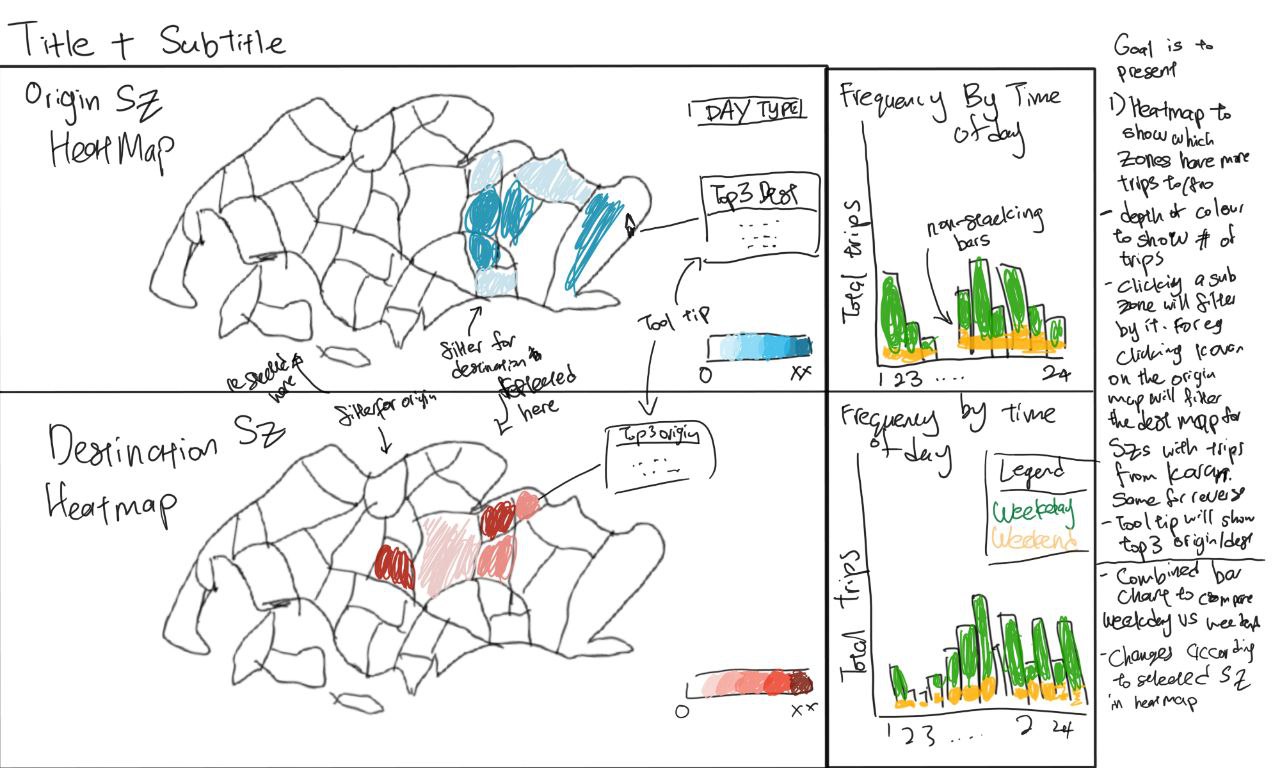 Title + Subtitle
Origin SZ
HeatMap
DAY TYPE
Top3 Dest
Tool tip
0 xx
filter for
destination
selected
here
filter for origin
here
Destination SZ
Heatmap
Top3 origin
0 xx
Frequency By Time
of day
Total trips
non-stacking
bars
1 2 3 .... 24
Frequency by time
of day
Legend
Weekday
Weekend
Total trips
1 2 3 .... 2 24
Goal is to
present
1) Heatmap to
show which
zones have more
trips to/fro
- depth of colour
to show # of
trips
- clicking a sub
zone will filter
by it. For eg
clicking
on the origin
map will filter
the dest map for
SZs with trips
from
Same for reverse
- Tool tip will show
top 3 origin/dest
- Combined bar
chart to compare
weekday vs weekend
- Changes according
to selected SZ
in heatmap